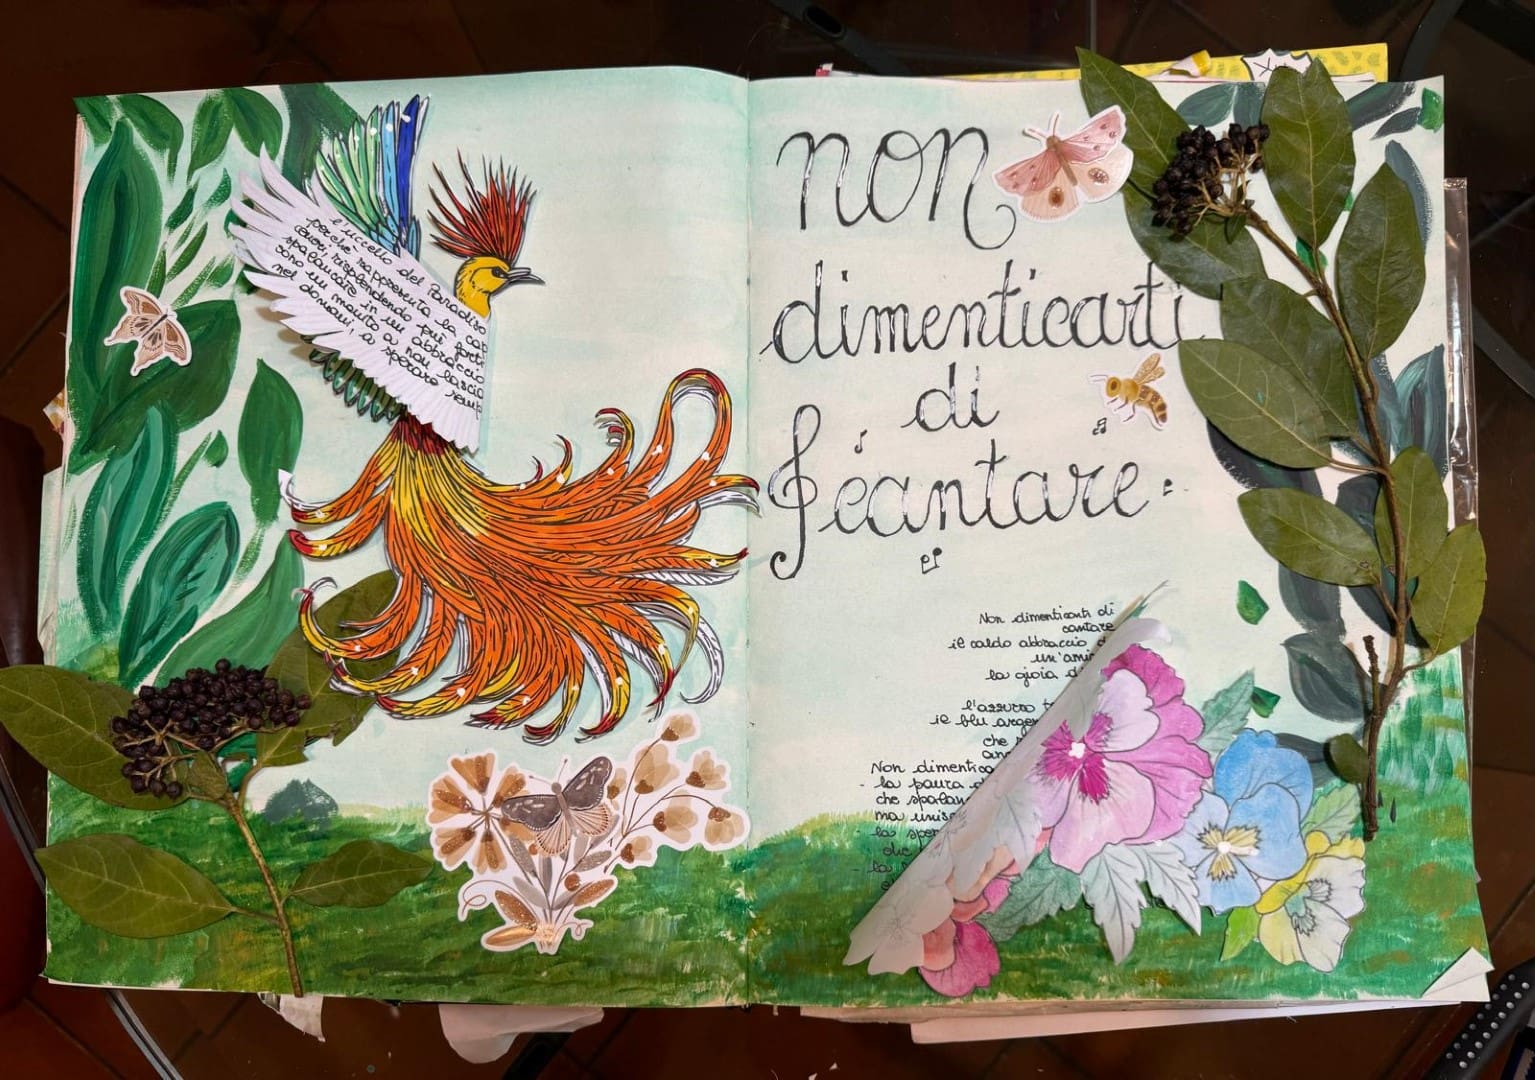 l'uccello del Paradiso
perchè rappresenta la cap
fuori, risplendendo più forti
spalancare in un abbraccio
sono un monito a non lascia
nel domani, a sperare semp
non
dimenticarti
di
cantare
Non dimenticarti di
cantare
il caldo abbraccio
un'ami
la gioia di
l'azzurro
il blu argen
che
Non dimentica
- la paura
che spalan
ma unisc
- la sper
che
- la